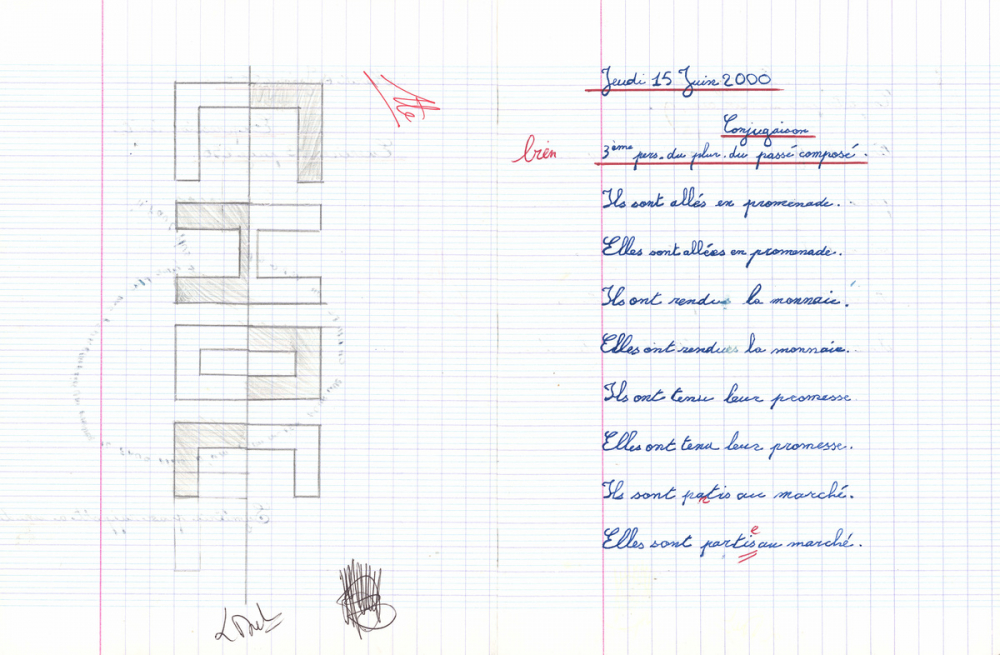 Jeudi 15 Juin 2000
Conjugaison
bien
3ème pers. du plur. du passé composé.
Ils sont allés en promenade.
Elles sont allées en promenade.
Ils ont rendu la monnaie.
Elles ont rendu la monnaie.
Ils ont tenu leur promesse
Elles ont tenu leur promesse.
r
Ils sont patis au marché.
e
Elles sont partis au marché.